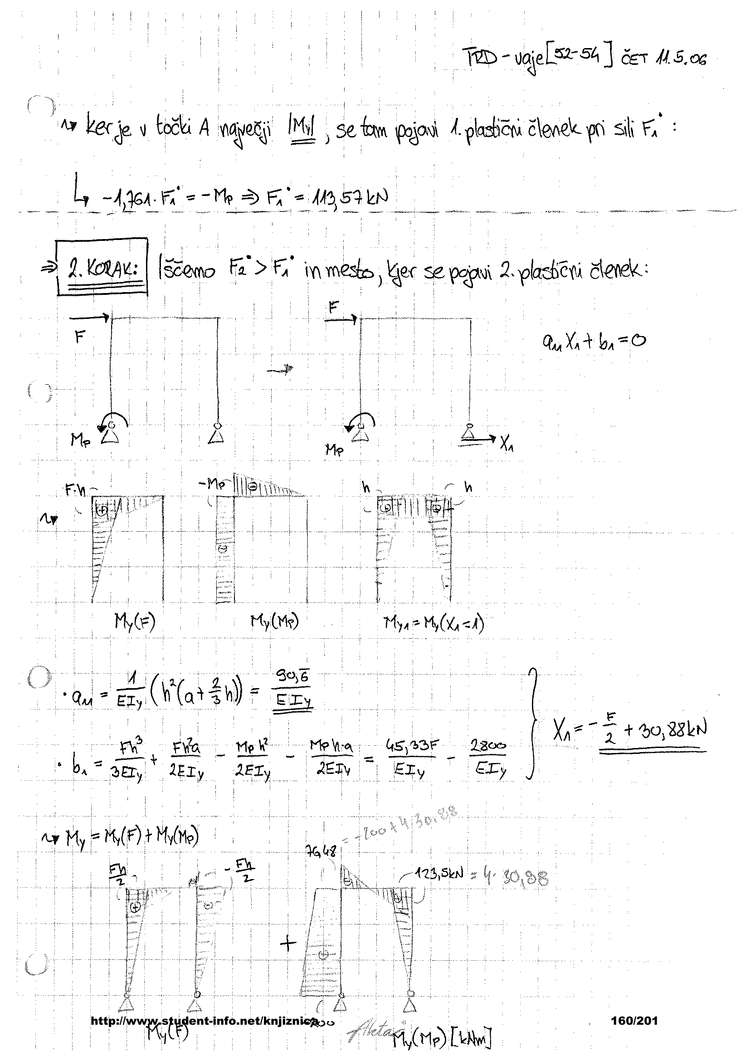 TRD - vaje [52-54] ČET 11.5.06
↝ ker je v točki A največji |My|, se tam pojavi 1. plastični členek pri sili F₁* :
↳ -1,761 · F₁* = -Mp ⇒ F₁* = 113,57 kN
⇒ 2. KORAK: Iščemo F₂* > F₁* in mesto, kjer se pojavi 2. plastični členek:
F F a₁₁X₁ + b₁ = 0
→
Mp Mp X₁
F·h -Mp h h
↝ ⊕ ⊖ ⊖ ⊕ ⊕
My(F) My(Mp) My₁ = My(X₁=1)
· a₁₁ = 1/EIy (h²(a + 2/3 h)) = 90,6̅/EIy
X₁ = -F/2 + 30,88 kN
· b₁ = Fh³/3EIy + Fh²a/2EIy - Mp h²/2EIy - Mp h·a/2EIy = 45,33F/EIy - 2800/EIy
↝ My = My(F) + My(Mp)
= -200 + 4·30,88
76,48
Fh/2 -Fh/2 123,5kN = 4·30,88
⊕ ⊖ + ⊖ ⊖ ⊕
http://www.student-info.net/knjiznica 200 160/201
My(F) My(Mp) [kNm]